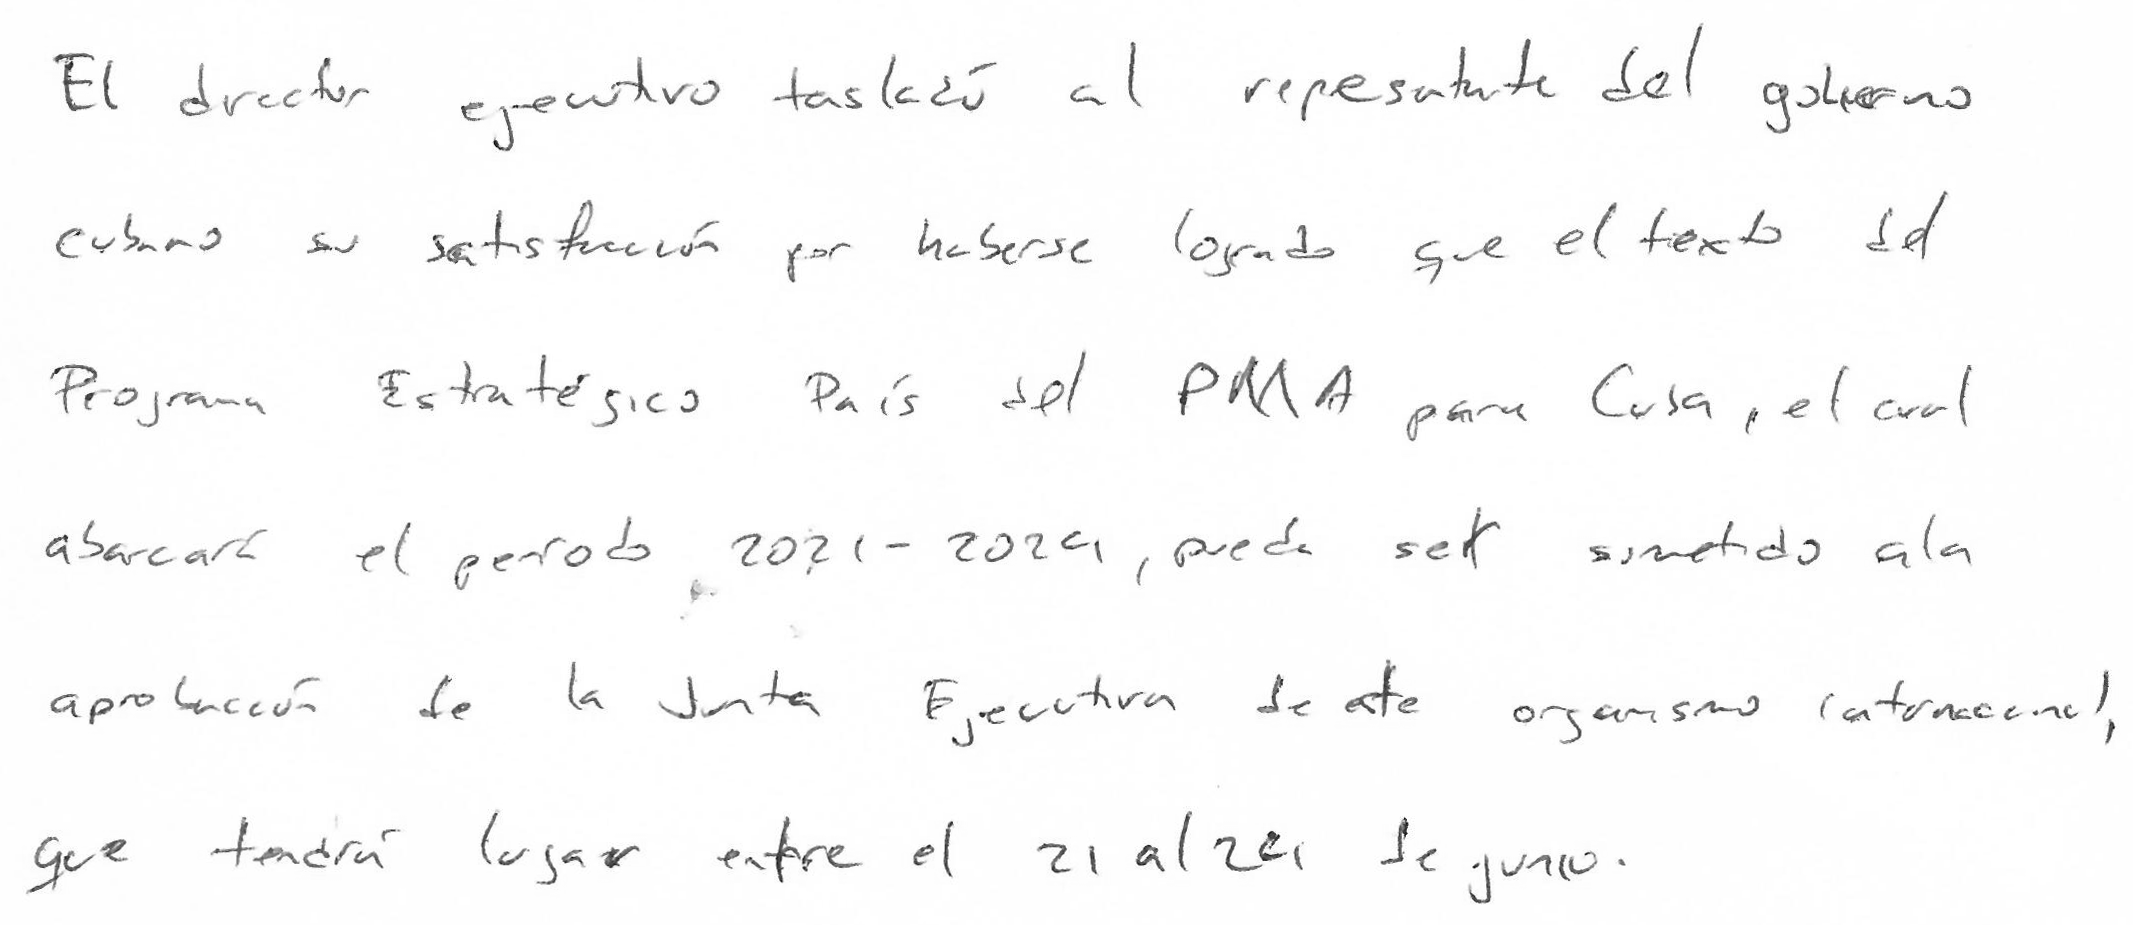 El director ejecutivo tasladó al repesentante del gobierno
cubano su satisfacción por haberse logrado que el texto del
Programa Estratégico País del PMA para Cuba, el cual
abarcará el período 2021-2024, pueda ser sometido a la
aprobación de la Junta Ejecutiva de este organismo internacional,
que tendrá lugar entre el 21 al 24 de junio.